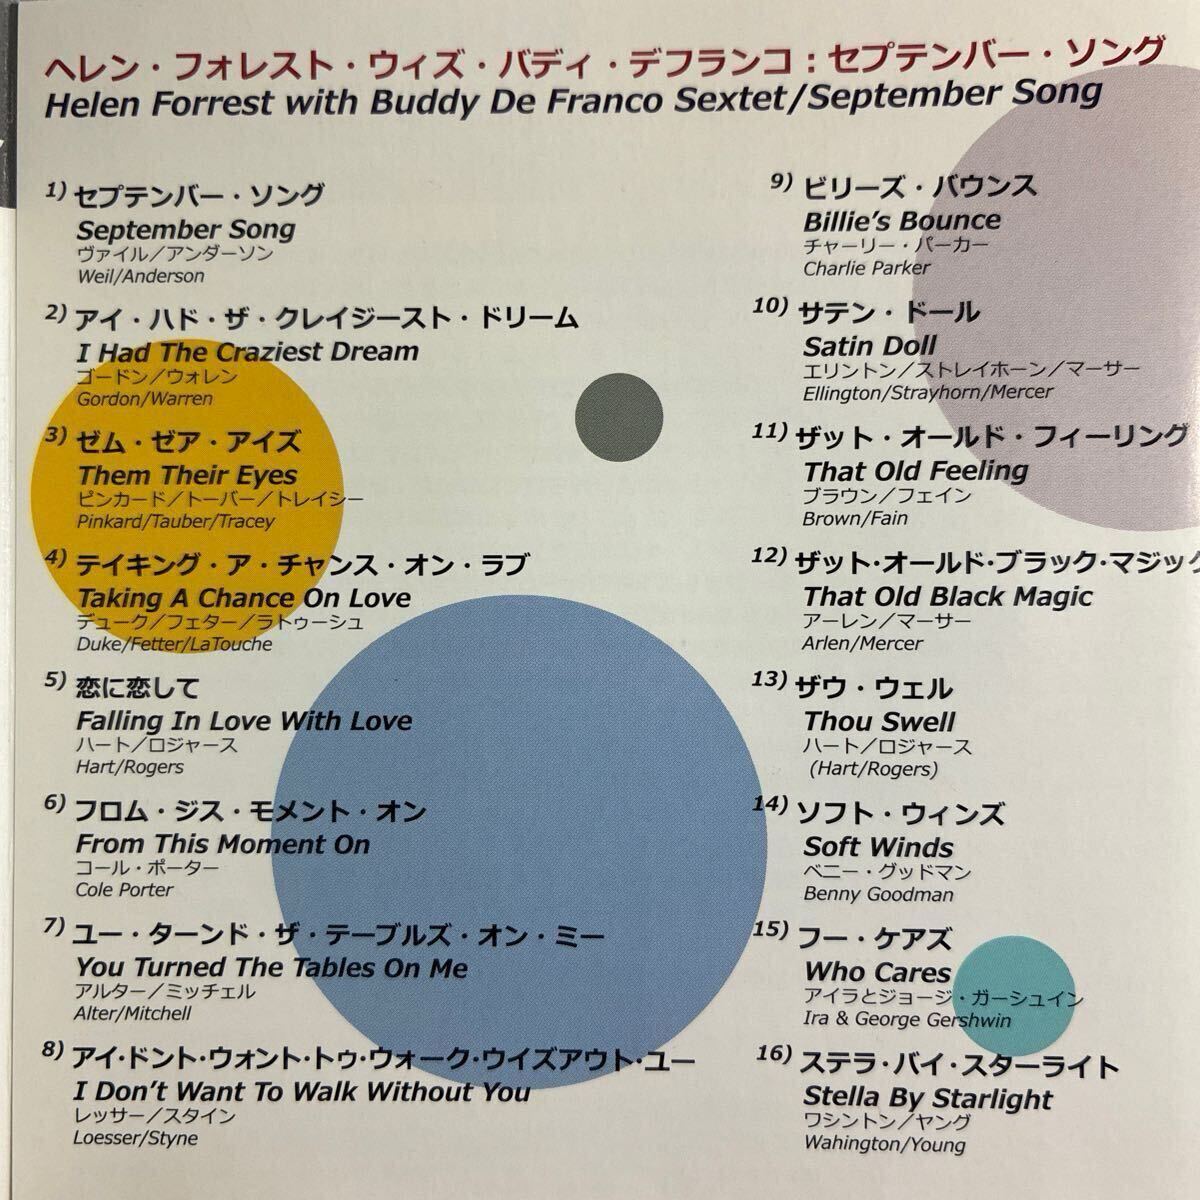 ヘレン・フォレスト・ウィズ・バディ・デフランコ：セプテンバー・ソング
Helen Forrest with Buddy De Franco Sextet/September Song
1) セプテンバー・ソング
September Song
ヴァイル／アンダーソン
Weil/Anderson
2) アイ・ハド・ザ・クレイジースト・ドリーム
I Had The Craziest Dream
ゴードン／ウォレン
Gordon/Warren
3) ゼム・ゼア・アイズ
Them Their Eyes
ピンカード／トーバー／トレイシー
Pinkard/Tauber/Tracey
4) テイキング・ア・チャンス・オン・ラブ
Taking A Chance On Love
デューク／フェター／ラトゥーシュ
Duke/Fetter/LaTouche
5) 恋に恋して
Falling In Love With Love
ハート／ロジャース
Hart/Rogers
6) フロム・ジス・モメント・オン
From This Moment On
コール・ポーター
Cole Porter
7) ユー・ターンド・ザ・テーブルズ・オン・ミー
You Turned The Tables On Me
アルター／ミッチェル
Alter/Mitchell
8) アイ・ドント・ウォント・トゥ・ウォーク・ウイズアウト・ユー
I Don't Want To Walk Without You
レッサー／スタイン
Loesser/Styne
9) ビリーズ・バウンス
Billie's Bounce
チャーリー・パーカー
Charlie Parker
10) サテン・ドール
Satin Doll
エリントン／ストレイホーン／マーサー
Ellington/Strayhorn/Mercer
11) ザット・オールド・フィーリング
That Old Feeling
ブラウン／フェイン
Brown/Fain
12) ザット・オールド・ブラック・マジック
That Old Black Magic
アーレン／マーサー
Arlen/Mercer
13) ザウ・ウェル
Thou Swell
ハート／ロジャース
(Hart/Rogers)
14) ソフト・ウィンズ
Soft Winds
ベニー・グッドマン
Benny Goodman
15) フー・ケアズ
Who Cares
アイラとジョージ・ガーシュイン
Ira & George Gershwin
16) ステラ・バイ・スターライト
Stella By Starlight
ワシントン／ヤング
Wahington/Young